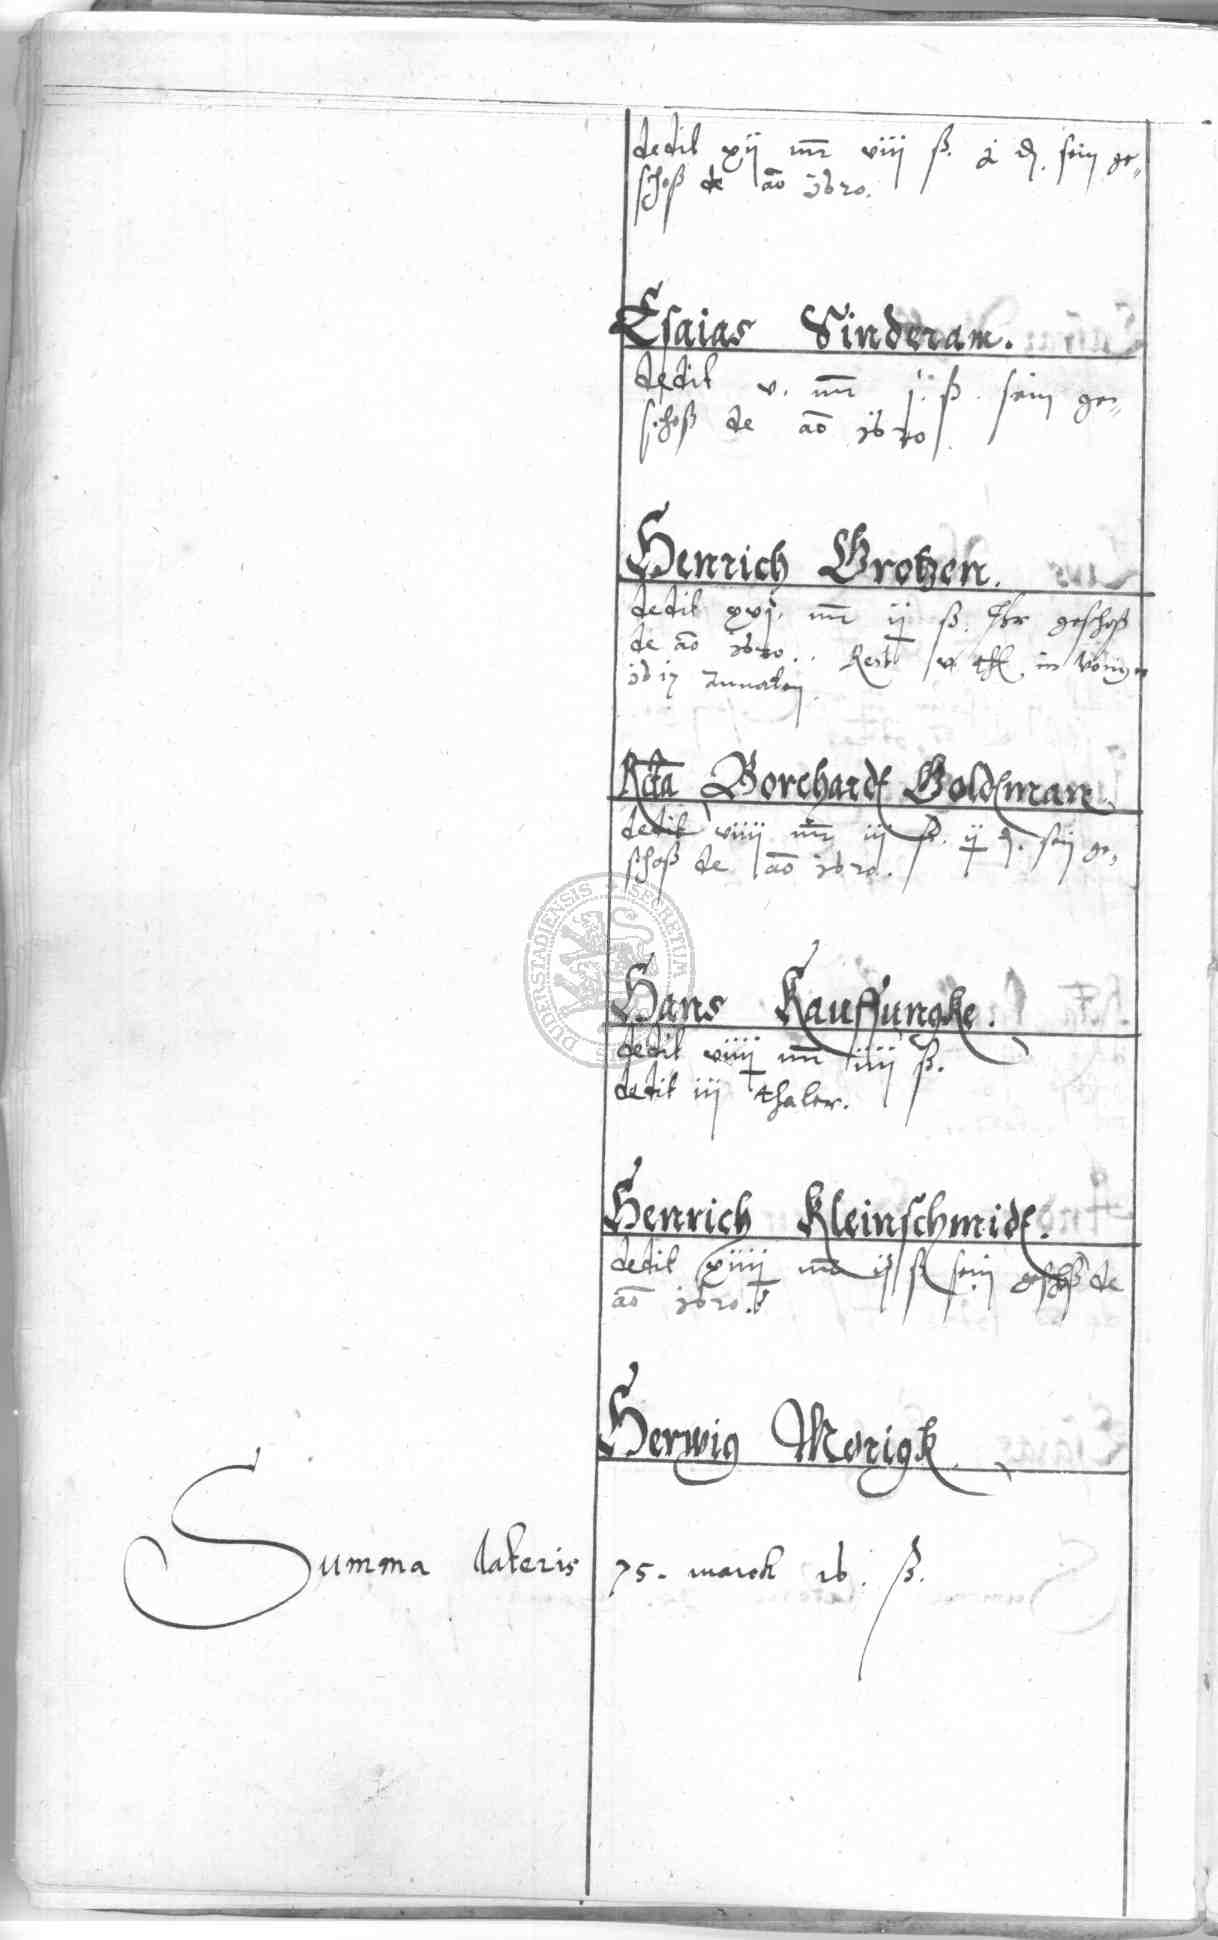 dedit xij mr viij ß. 2 d. sein ge„
schoß de ao 1620.
Esaias Sinderam.
dedit v. mr j. ß. sein ge„
schoß de ao 1620.
Henrich Grotzen.
dedit xvj. mr ij ß. Ihr geschoß
de ao 1620.. Rest v thl. in vorigen
1617 Annaten
Rcta Borchardt Goldtman
dedit viiij mr iij ß. ij d. sein ge„
schoß de ao 1620.
DUDERSTADIENSIS SECRETUM
Hans Kauffungke.
dedit viiij mr iiij ß.
dedit iij thaler.
Henrich Kleinschmidt.
dedit xiiij mr ij ß sein geschoß de
ao 1620.
Herwig Morigk
Summa lateris 75. marck 16. ß.